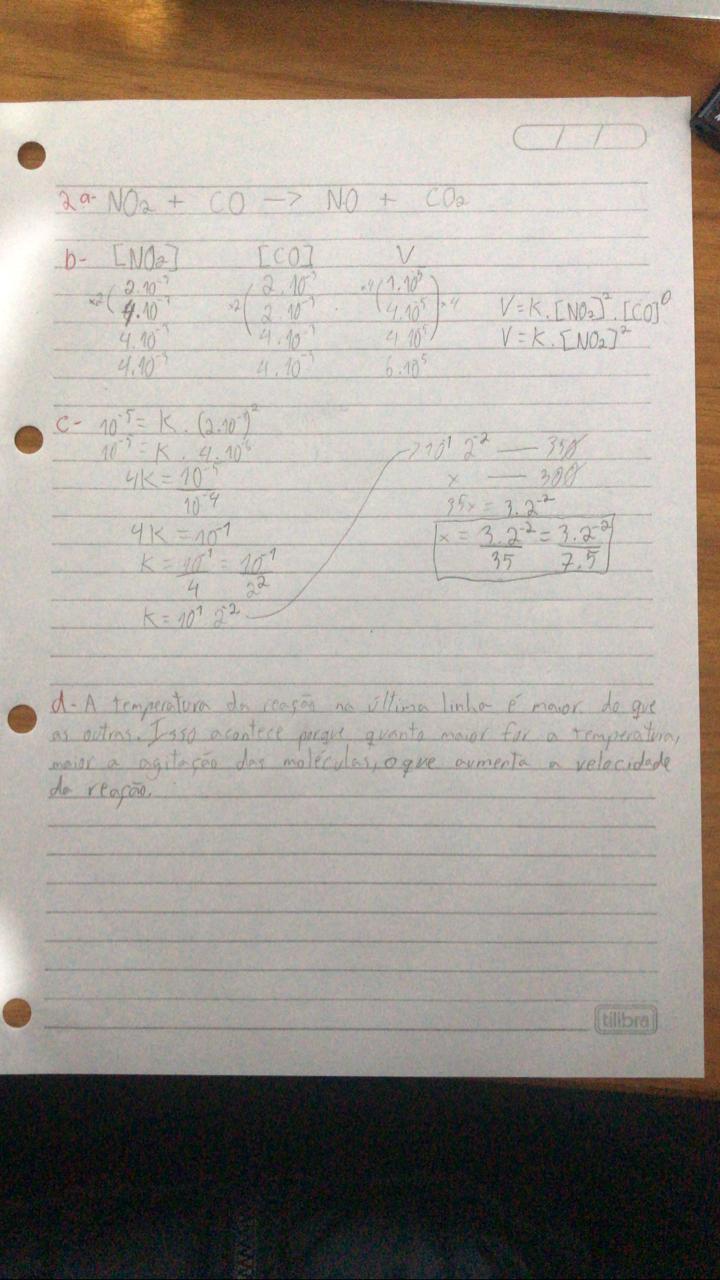 2a- NO₂ + CO -> NO + CO₂
b- [NO₂] [CO] V
x2 ( 2.10⁻³ x2 ( 2.10⁻³ x4 ( 1.10⁻⁵ ) x4
4.10⁻³ 2.10⁻³ 4.10⁻⁵ V=K.[NO₂]².[CO]⁰
4.10⁻³ 4.10⁻³ 4.10⁻⁵ V=K.[NO₂]²
4.10⁻³ 4.10⁻³ 6.10⁵
c- 10⁻⁵ = K.(2.10⁻³)²
10⁻⁵ = K. 4.10⁻⁶
4K = 10⁻⁵
10⁻⁴
4K = 10⁻¹
K = 10¹ = 10⁻¹
4 2²
K = 10¹ 2⁻²
10¹ 2⁻² — 350
x — 300
35x = 3.2⁻²
x = 3.2⁻² = 3.2⁻²
35 7.5
d- A temperatura da reação na última linha é maior do que
as outras. Isso acontece porque quanto maior for a temperatura,
maior a agitação das moléculas, o que aumenta a velocidade
da reação.
tilibra